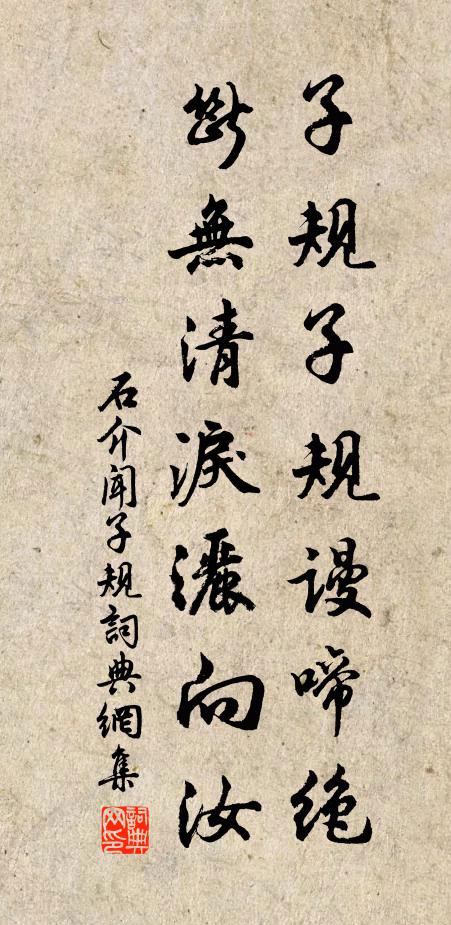 子規子規謾啼絶
斷無清淚灑向汝
石介聞子規詞典網集
詞典網印